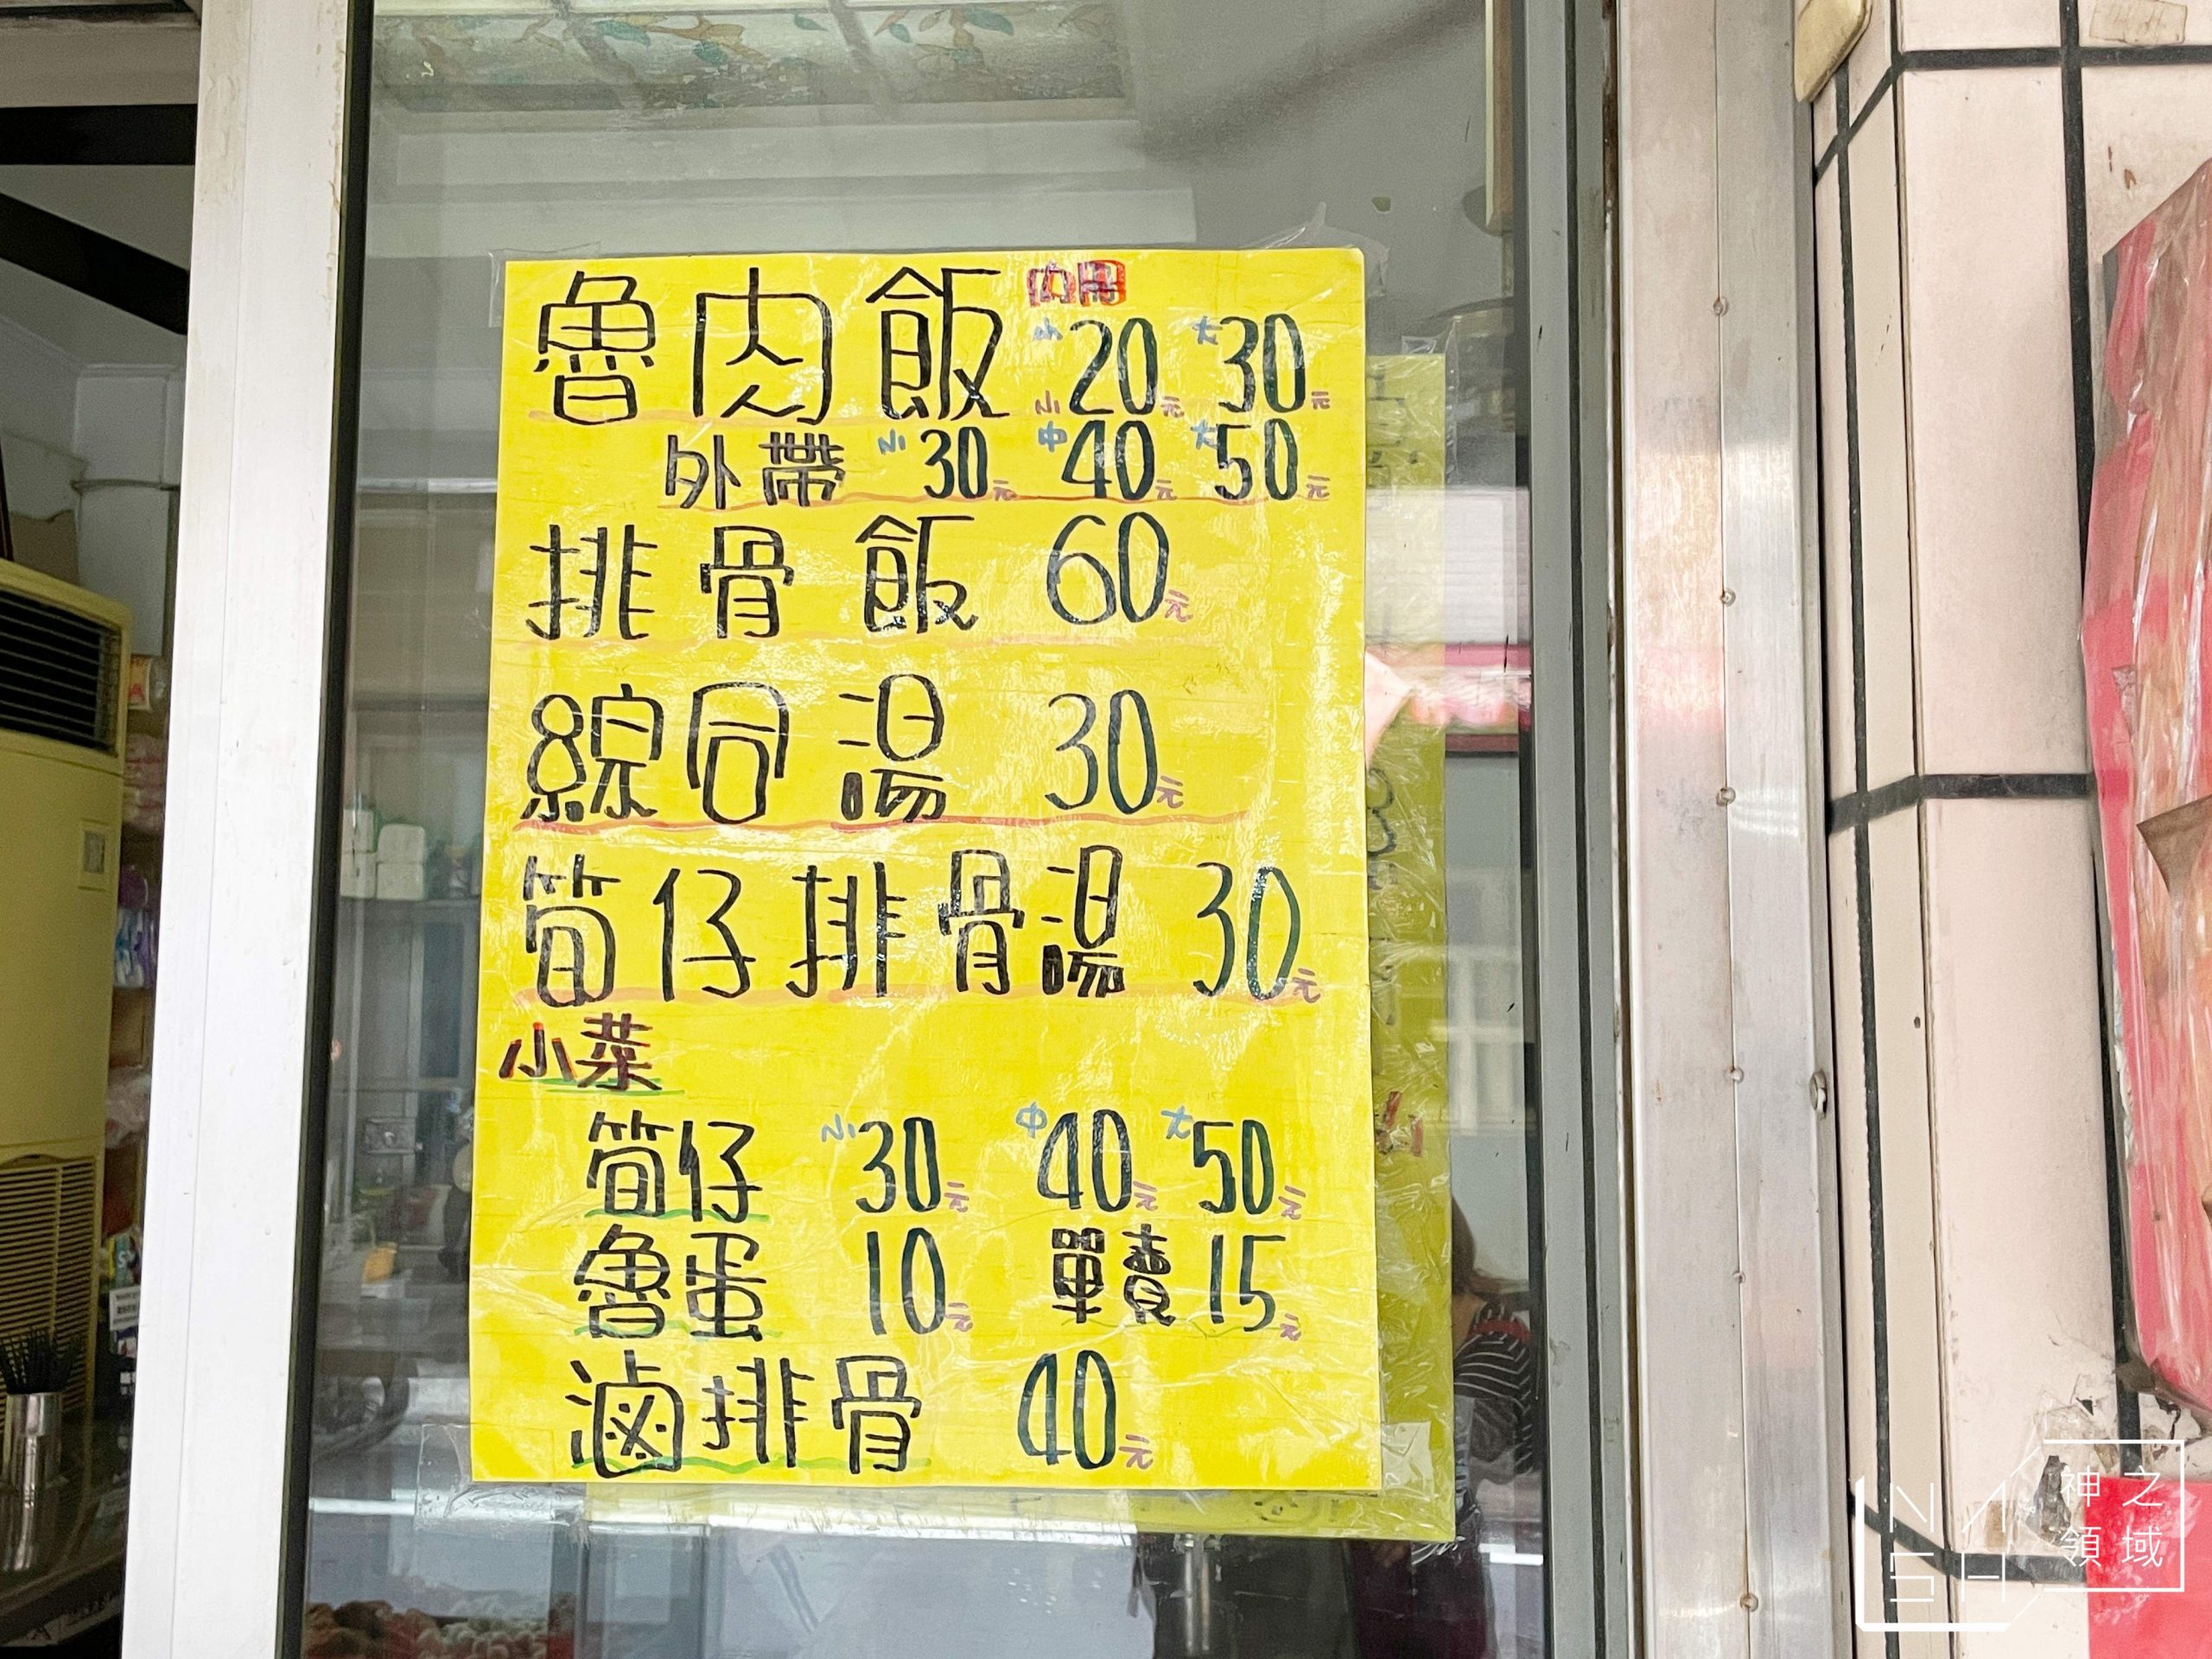 魯肉飯 內用 小20元 大30元
外帶 小30元 中40元 大50元
排骨飯 60元
線同湯 30元
筍仔排骨湯 30元
小菜
筍仔 小30元 中40元 大50元
魯蛋 10元 單賣15元
滷排骨 40元
NASH
神之
領域